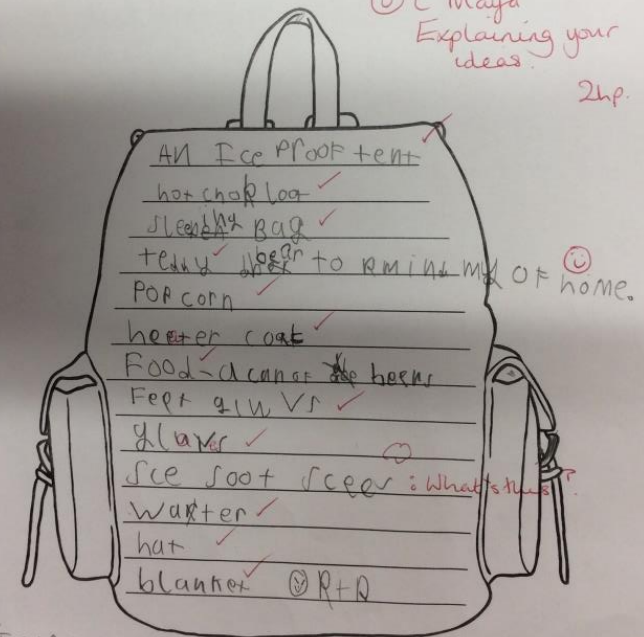 C Maya
Explaining your
ideas.
2hp.
An Ice Proof tent
hot chok lot
sleeping Bag
teddy bear to rmind my of home.
Pop corn
heeter coat
Food-a can of beens
Feet gluvs
glaves
Sce Soot Scees : What's this?
Waxter
hat
blanket R+R